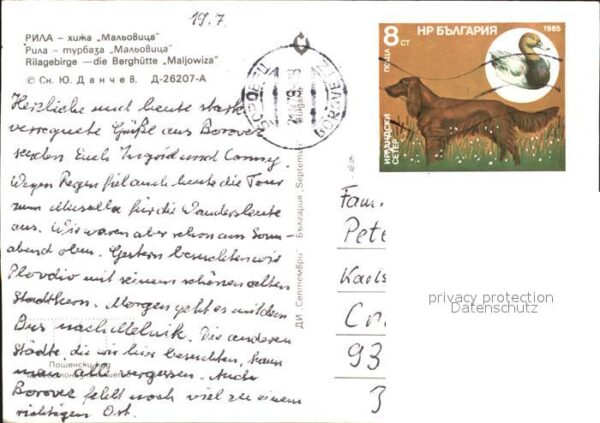 19.7
РИЛА – хижа „Мальовица"
Рила – турбаза „Мальовица"
Rilagebirge —die Berghütte „Maljowiza"
© Сн. Ю. Данчев. Д-26207-А
Herzliche und heute stark
verregnete Grüße aus Borovez
senden Euch Ingrid und Conny.
Wegen Regen fiel auch heute die Tour
zum Musalla für die Wandersleute
aus. Wir waren aber schon am Sonn-
abend oben. Gestern besuchten wir
Plovdiv mit seinem schönen alten
Stadtkern. Morgen geht es mit dem
Bus nach Melnik. Die anderen
Städte, die wir hier besuchten, kann
man alle vergessen. Auch
Borovez fehlt noch viel zu einem
richtigen Ort.
Пощенски код
ДИ „Септември" България „Septemvri"
BOROVEZ
НР БЪЛГАРИЯ 1985
8 СТ
ПОЩА
ИРЛАНДСКИ
СЕТЕР
Fam.
Pete
Karls
93
privacy protection
Datenschutz